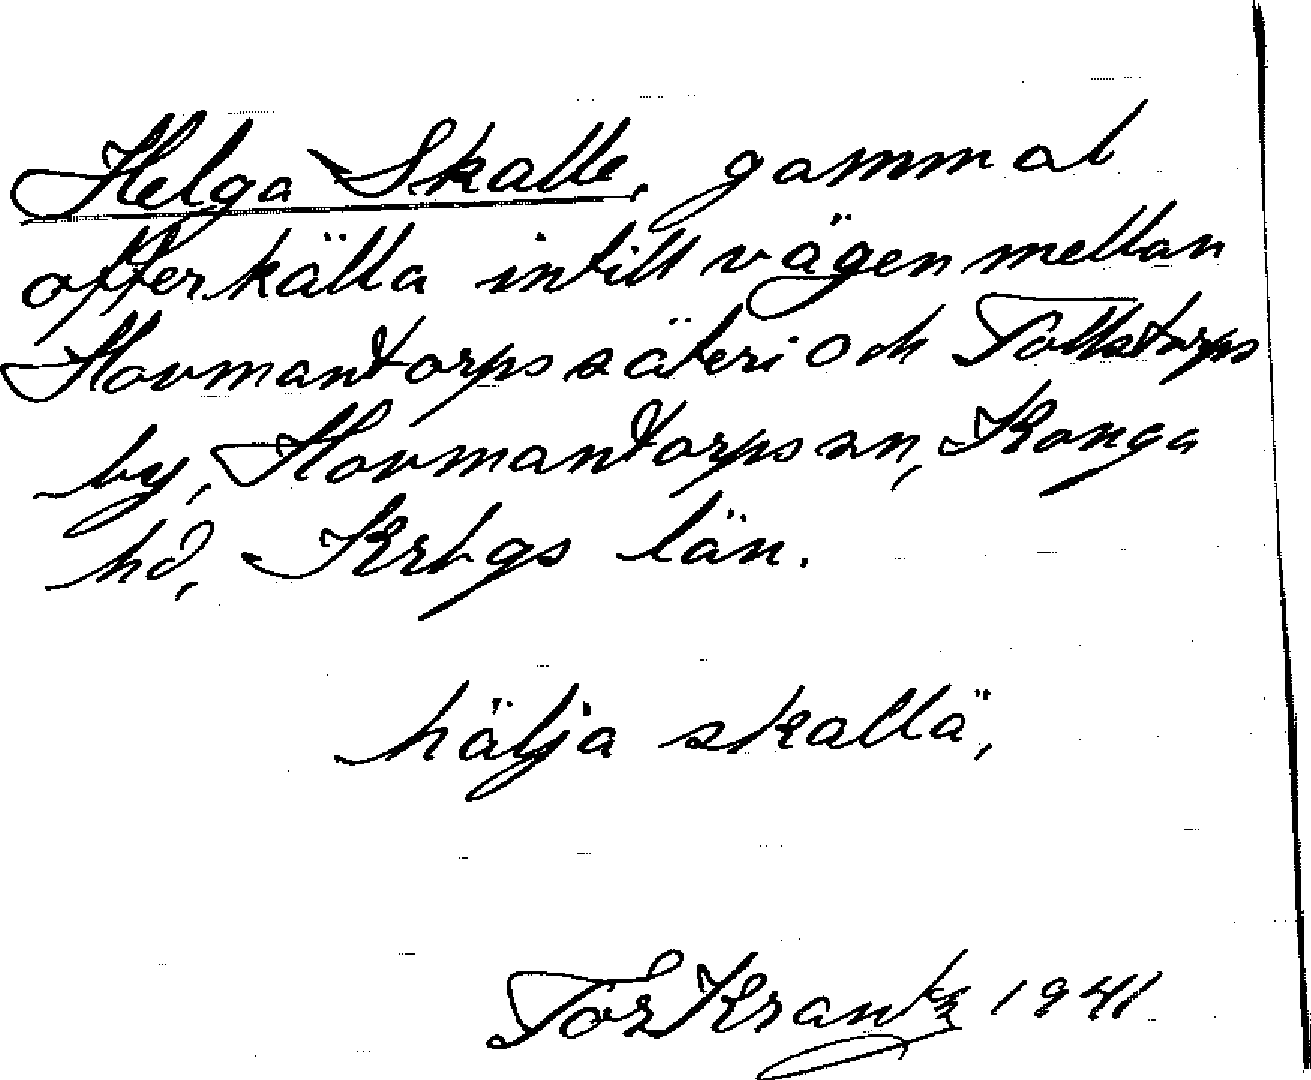 Helga Skalle, gammal
offerkälla intill vägen mellan
Hovmantorps säteri och Tollstorps
by, Hovmantorps sn, Konga
hd, Krbgs län.
hälja skallä,
Tor Krantz 1941